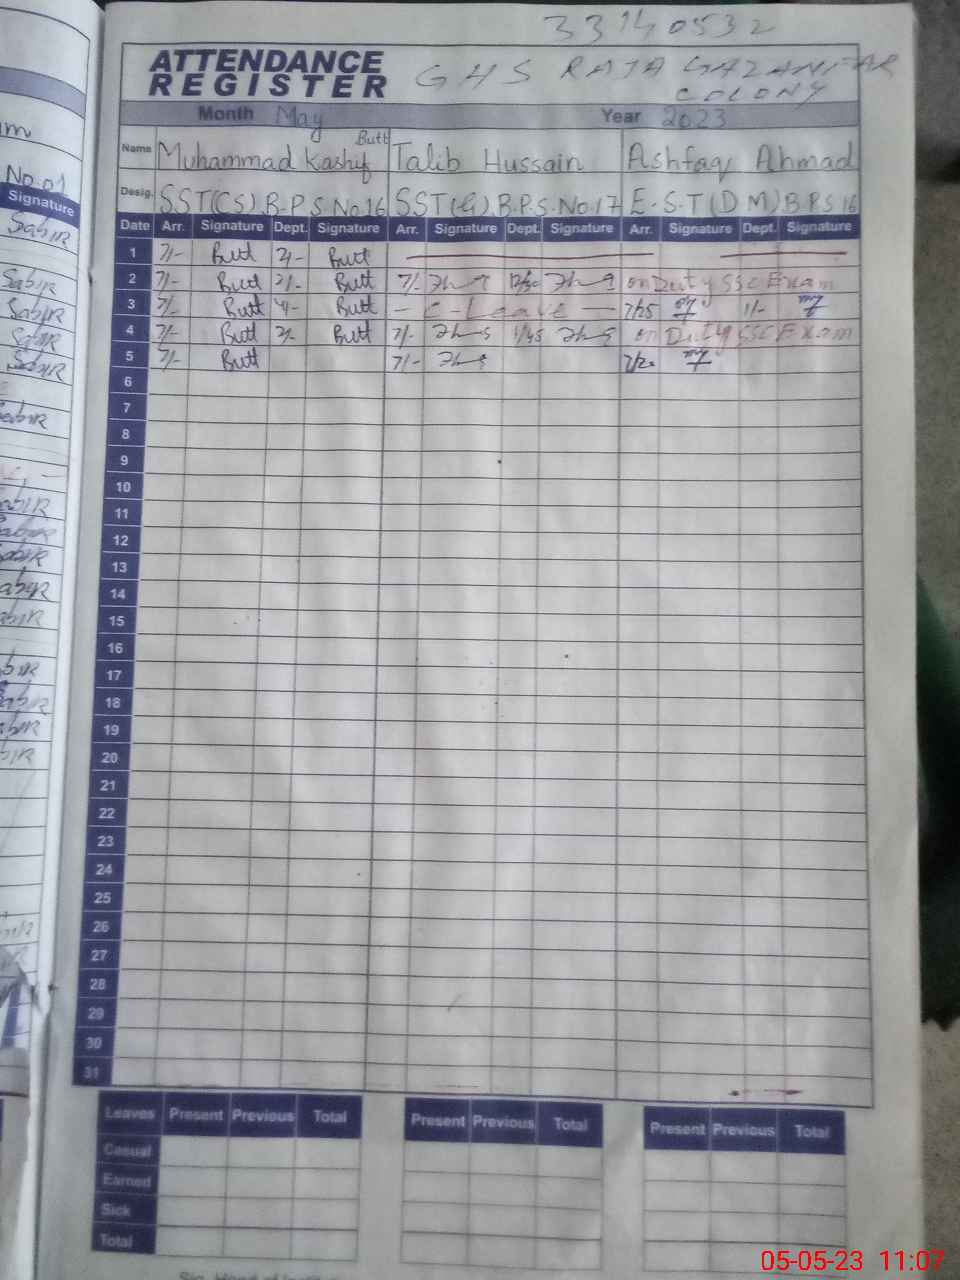 33140532
ATTENDANCE REGISTER GHS RAJA GAZANFAR COLONY
Month May Year 2023
Name Muhammad Kashif Butt Talib Hussain Ashfaq Ahmad
Desig. SST(CS) B.P.S.No 16 SST(G) B.P.S.No.17 E.S.T(DM) B.P.S 16
Date Arr. Signature Dept. Signature Arr. Signature Dept. Signature Arr. Signature Dept. Signature
1 7/- Butt 2/- Butt
2 7/- Butt 2/- Butt 7/- 12/30 on Duty SSC Exam
3 7/- Butt Butt C-Leave 7/25 1/-
4 7/- Butt 2/- Butt 7/- 1/45 on Duty SSC Exam
5 7/- Butt 7/- 7/20
6
7
8
9
10
11
12
13
14
15
16
17
18
19
20
21
22
23
24
25
26
27
28
29
30
31
Leaves Present Previous Total Present Previous Total Present Previous Total
Casual
Earned
Sick
Total
No.01
Signature
Sabir
Sabir
Sabir
Sabir
Sabir
05-05-23 11:07